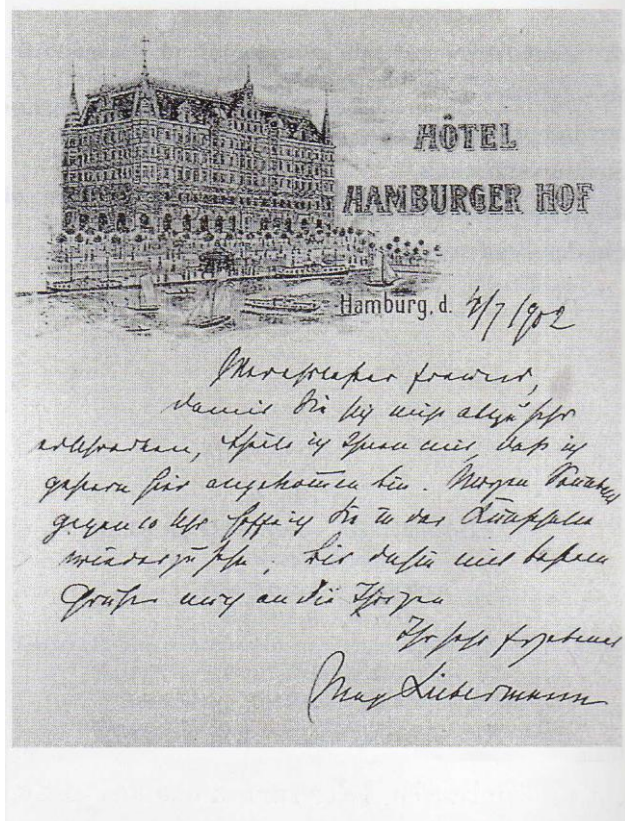 HÔTEL
HAMBURGER HOF
Hamburg, d. 4/7 1902
Verehrtester Freund,
damit Sie sich nicht allzu sehr
erschrecken, theile ich Ihnen mit, daß ich
gestern hier angekommen bin. Morgen
gegen 10 Uhr hoffe ich Sie in der Kunsthalle
wiederzusehn, bis dahin mit besten
Grüßen auch an die Ihrigen
Ihr sehr ergebener
Max Liebermann